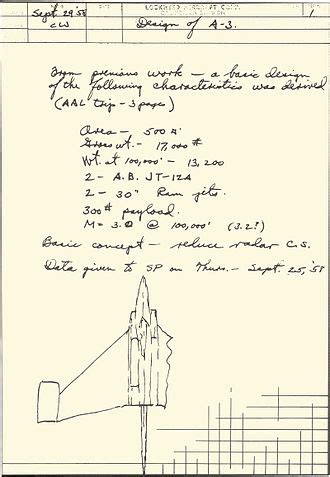 LOCKHEED AIRCRAFT CORP.
Sept. 29 '58
CLJ
Design of A-3.
1
From previous work — a basic design
of the following characteristics was derived
(AAL trip - 3 pages)
Area — 500 #'
Gross wt. - 17,000 #
Wt. at 100,000' — 13,200
2 - A.B. JT-12A
2 - 30" Ram jets.
300# payload.
M = 3.0 @ 100,000' (3.2?)
Basic concept — reduce radar C.S.
Data given to SP on Thurs. - Sept. 25, '58